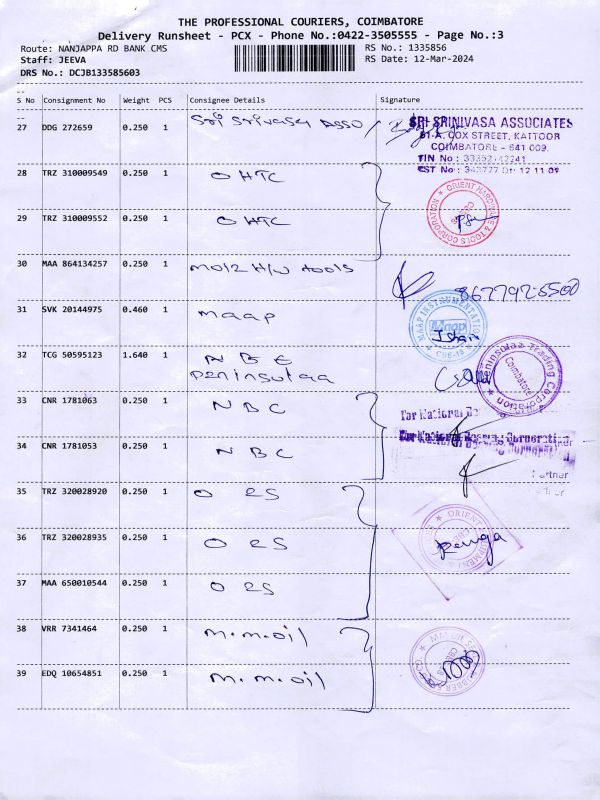 THE PROFESSIONAL COURIERS, COIMBATORE
Delivery Runsheet - PCX - Phone No.:0422-3505555 - Page No.:3
Route: NANJAPPA RD BANK CMS RS No.: 1335856
Staff: JEEVA RS Date: 12-Mar-2024
DRS No.: DCJB133585603
S No Consignment No Weight PCS Consignee Details Signature
27 DDG 272659 0.250 1 Sri Srivasa Asso
SRI SRINIVASA ASSOCIATES
61-A, COX STREET, KATTOOR
COIMBATORE - 641 009.
TIN No : 33352142241
28 TRZ 310009549 0.250 1 O HTC
29 TRZ 310009552 0.250 1 O HTC
ORIENT HARDWARE & TOOLS CORPORATION
30 MAA 864134257 0.250 1 H/W tools
31 SVK 20144975 0.460 1 maap
MAAP INSTRUMENTATION
Maap
CBE-18
Ishan
32 TCG 50595123 1.640 1 N B C
Peninsulaa
Peninsulaa Trading Corporation
Coimbatore
33 CNR 1781063 0.250 1 N B C
For National
34 CNR 1781053 0.250 1 N B C
For National Bearing Corporation
Partner
35 TRZ 320028920 0.250 1 O ES
36 TRZ 320028935 0.250 1 O ES
ORIENT
Renuga
37 MAA 650010544 0.250 1 O ES
38 VRR 7341464 0.250 1 m.m.oil
39 EDQ 10654851 0.250 1 m.m.oil